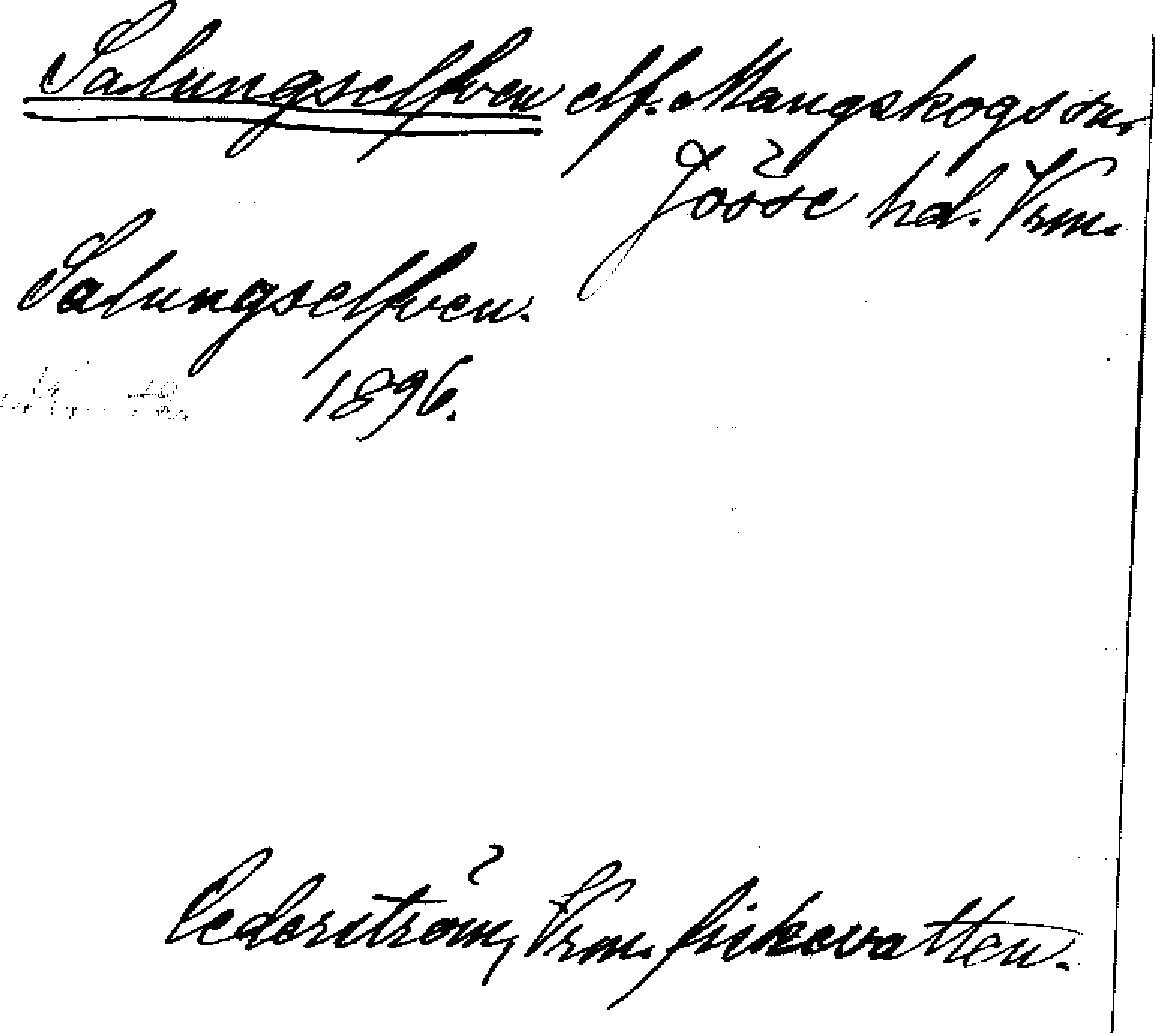 Salungselfven elf. Mangskogs sn.
Jösse hd. Vrm.
Salungselfven.
1896.
Cederström, Vrm. fiskevatten.